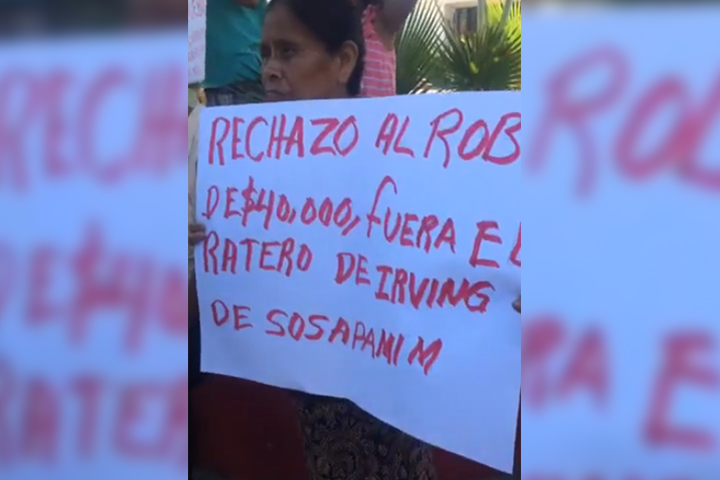 RECHAZO AL ROB
DE $40,000, FUERA EL
RATERO DE IRVING
DE SOSAPAMIM